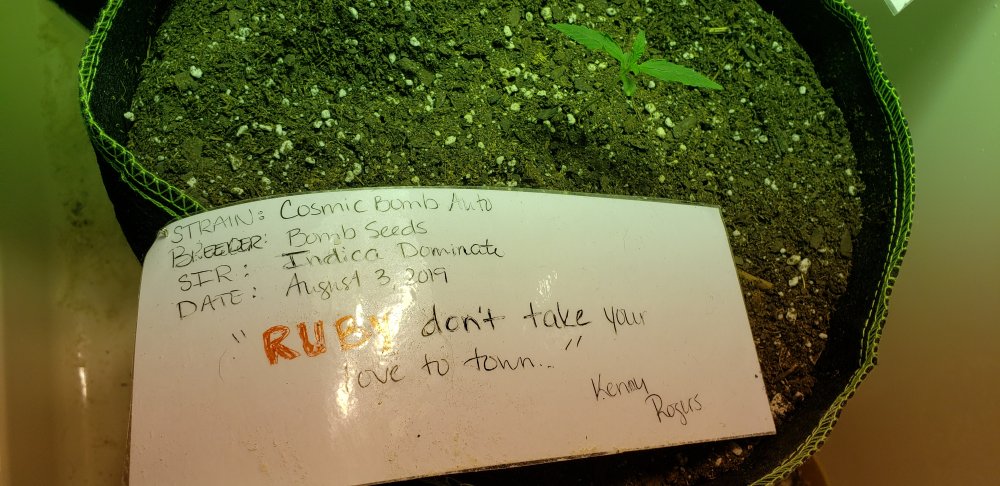 STRAIN: Cosmic Bomb Auto
BREEDER: Bomb Seeds
SIR: Indica Dominate
DATE: August 3, 2019
"RUBY don't take your
love to town.."
Kenny
Rogers